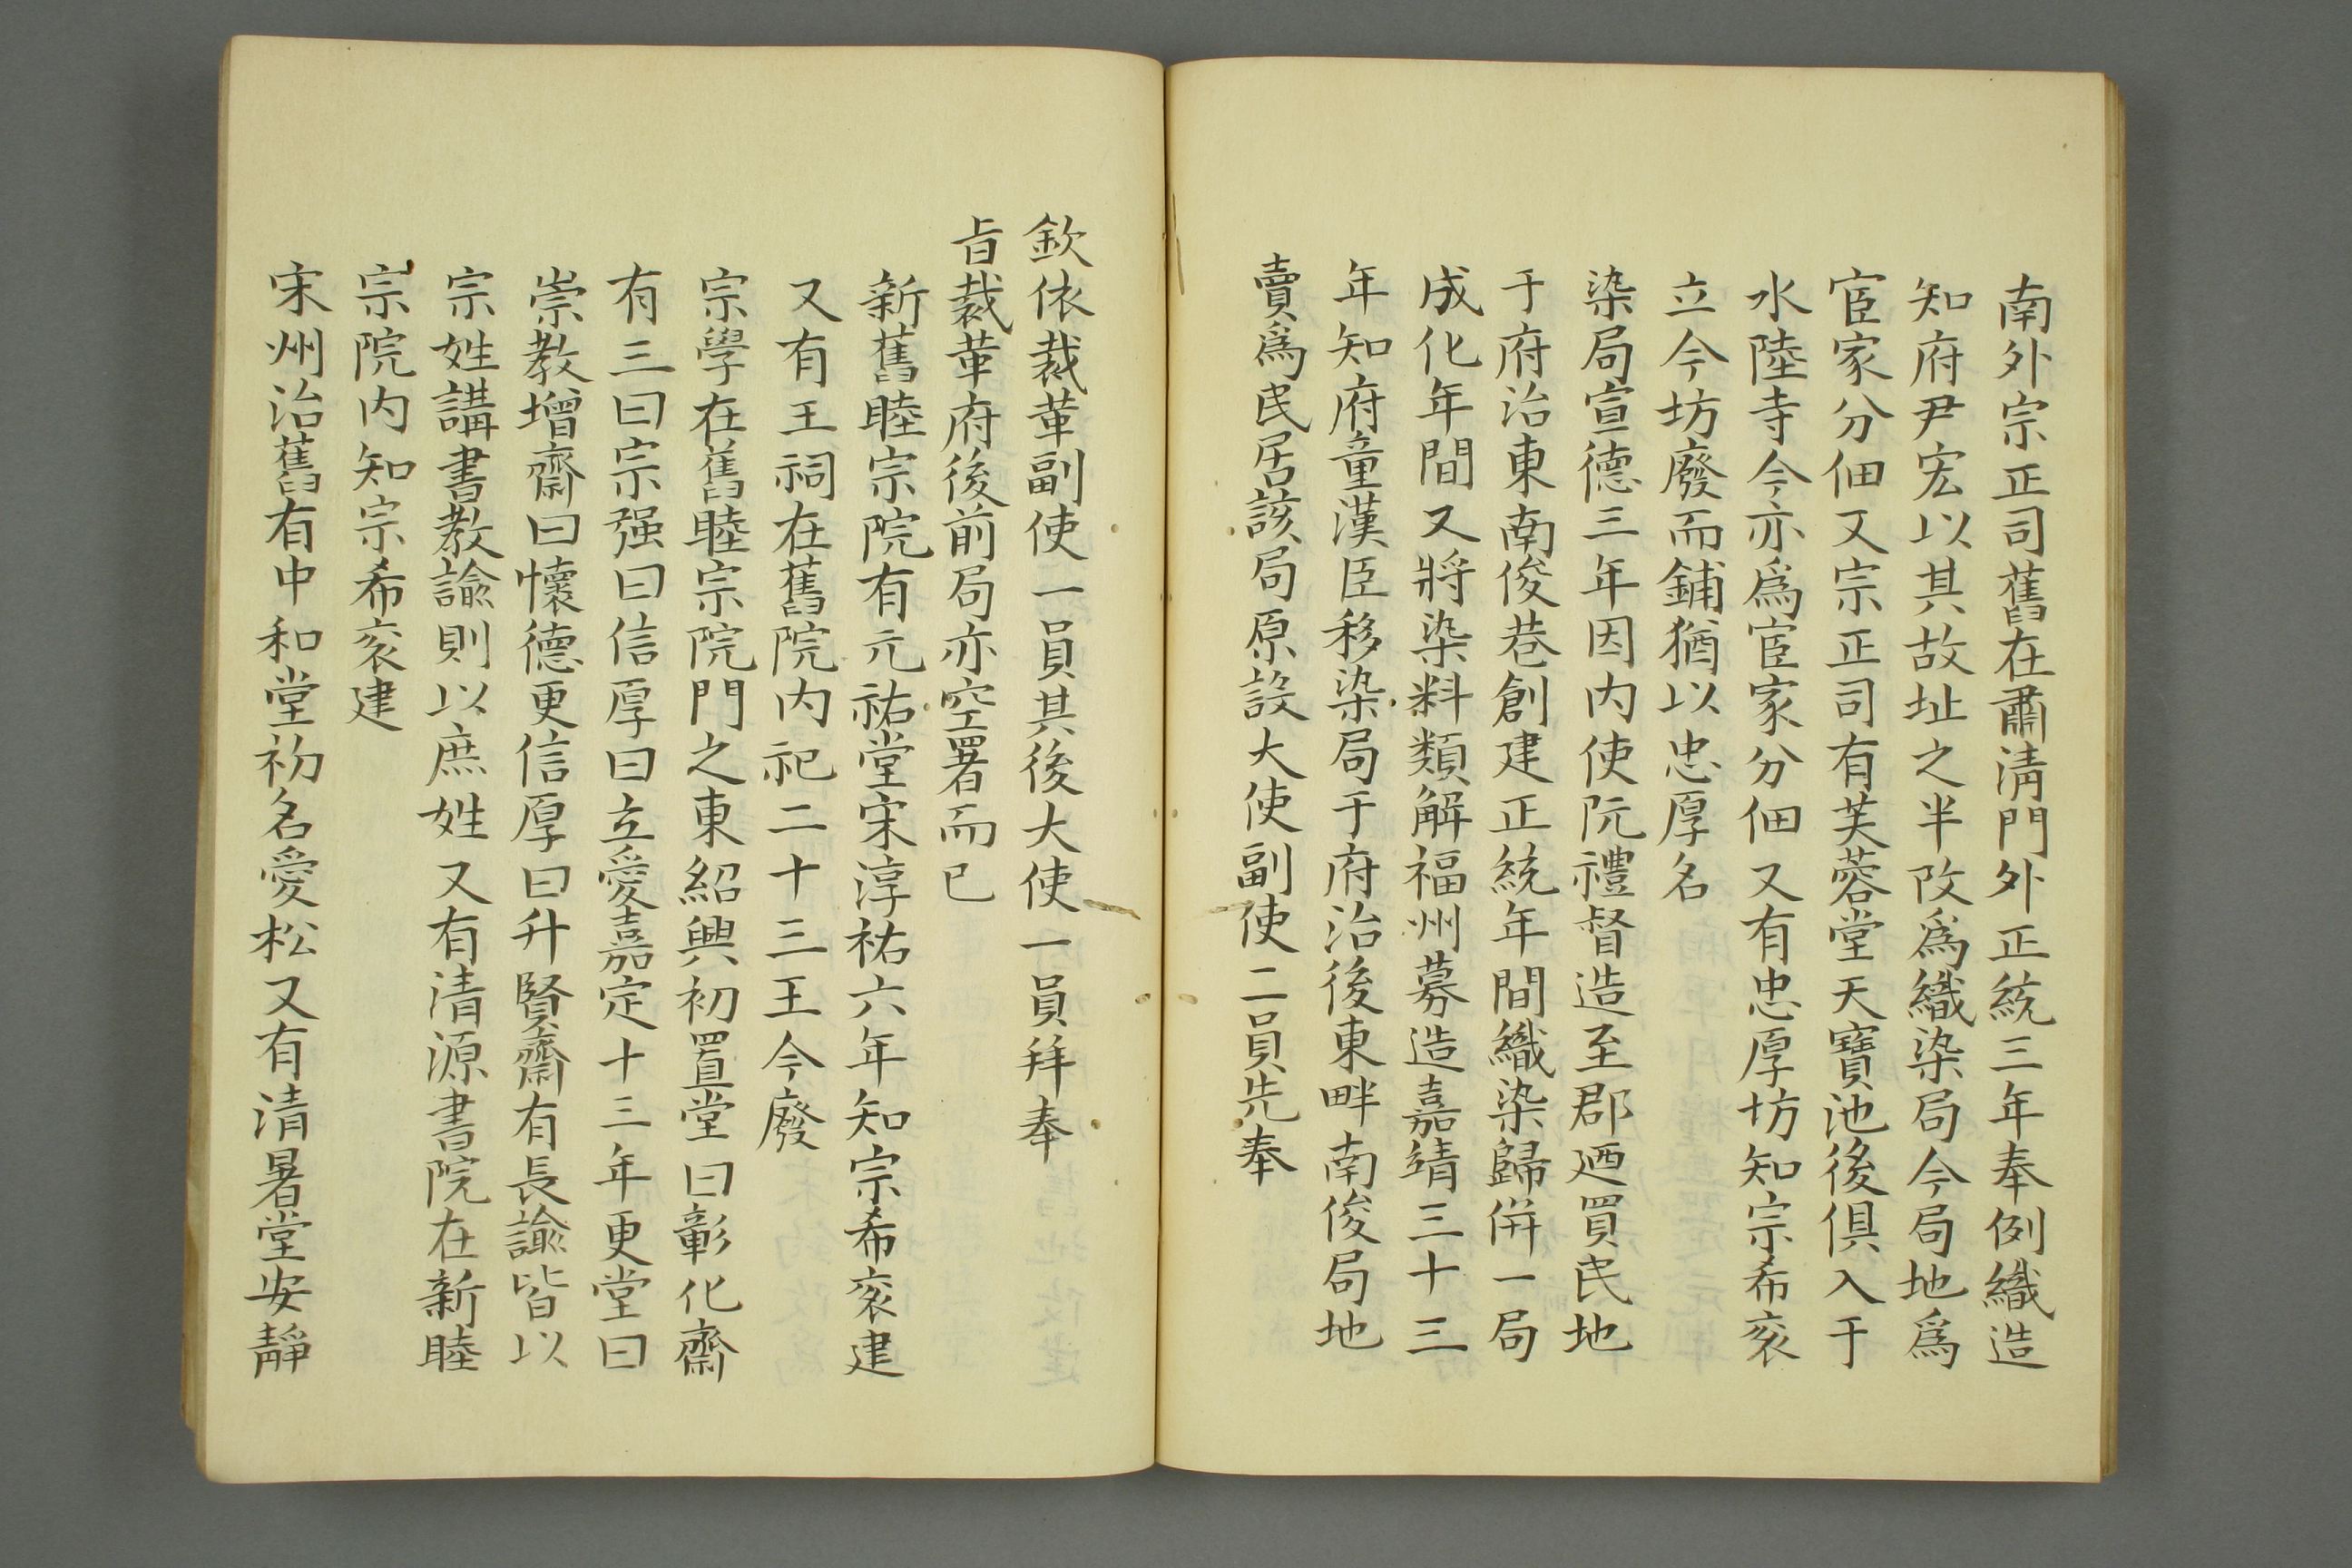 南外宗正司舊在肅淸門外正統三年奉例織造
知府尹宏以其故址之半改爲織染局今局地爲
宦家分佃又宗正司有芙蓉堂天寶池後俱入于
水陸寺今亦爲宦家分佃又有忠厚坊知宗希衮
立今坊廢而鋪猶以忠厚名
染局宣德三年因内使阮禮督造至郡廼買民地
于府治東南俊巷創建正統年間織染歸併一局
成化年間又將染料類解福州募造嘉靖三十三
年知府童漢臣移染局于府治後東畔南俊局地
賣爲民居該局原設大使副使二員先奉
欽依裁革副使一員其後大使一員拜奉
旨裁革府後前局亦空署而已
新舊睦宗院有元祐堂宋淳祐六年知宗希衮建
又有王祠在舊院内祀二十三王今廢
宗學在舊睦宗院門之東紹興初置堂曰彰化齋
有三曰宗强曰信厚曰立愛嘉定十三年更堂曰
崇教增齋曰懷德更信厚曰升賢齋有長諭皆以
宗姓講書教諭則以庶姓又有清源書院在新睦
宗院内知宗希衮建
宋州治舊有中和堂初名愛松又有清暑堂安靜